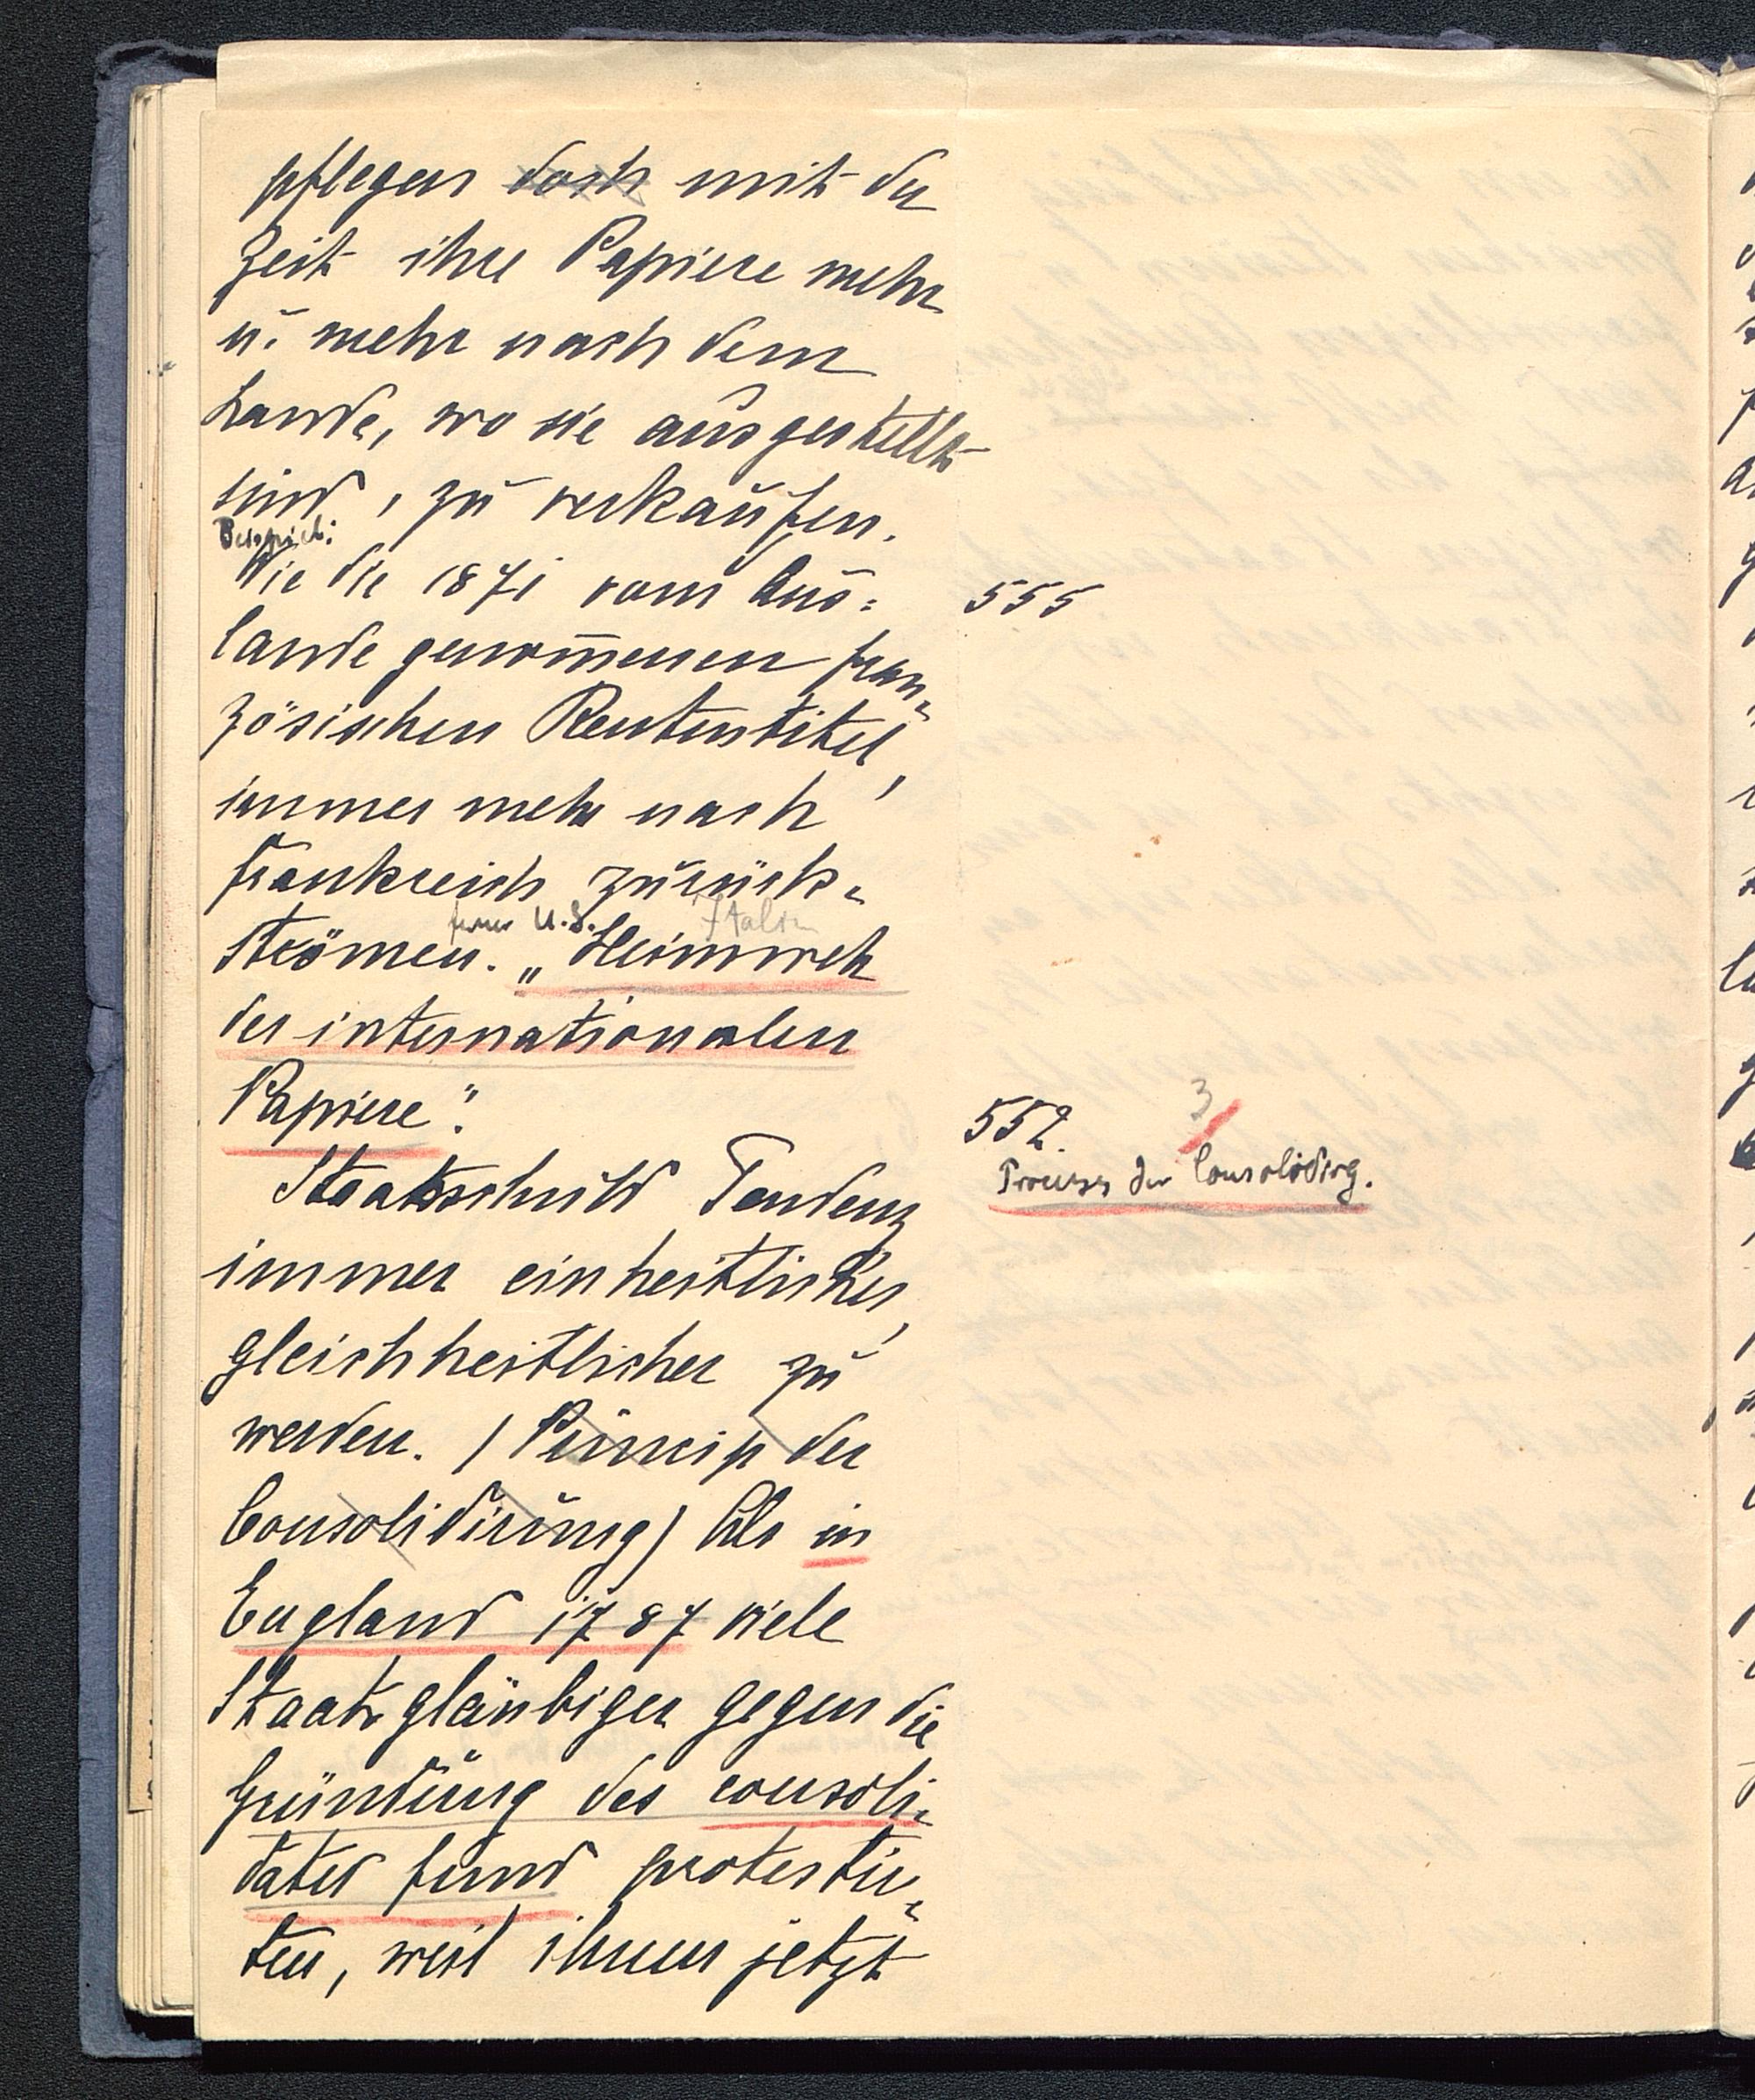 pflegen doch mit der
Zeit ihre Papiere mehr
u. mehr nach dem
Lande, wo sie ausgestellt
sind, zu verkaufen.
Beispiel:
Wie die 1871 vom Aus=
555
lande genom̅enen fran=
zösischen Rentestitel,
immer mehr nach
Frankreich zurück=
ferner U.S. Italien
strömen. „Heimweh
der internationalen
Papiere".
552.
3
Process der Consolidirg.
Staatsschuld Tendenz
immer einheitlicher,
gleichheitlicher zu
werden. (Princip der
Consolidirung) Als in
England 1787 viele
Staatsgläubiger gegen die
Gründung des consoli=
dated fund protestir=
ten, weil ihnen jetzt